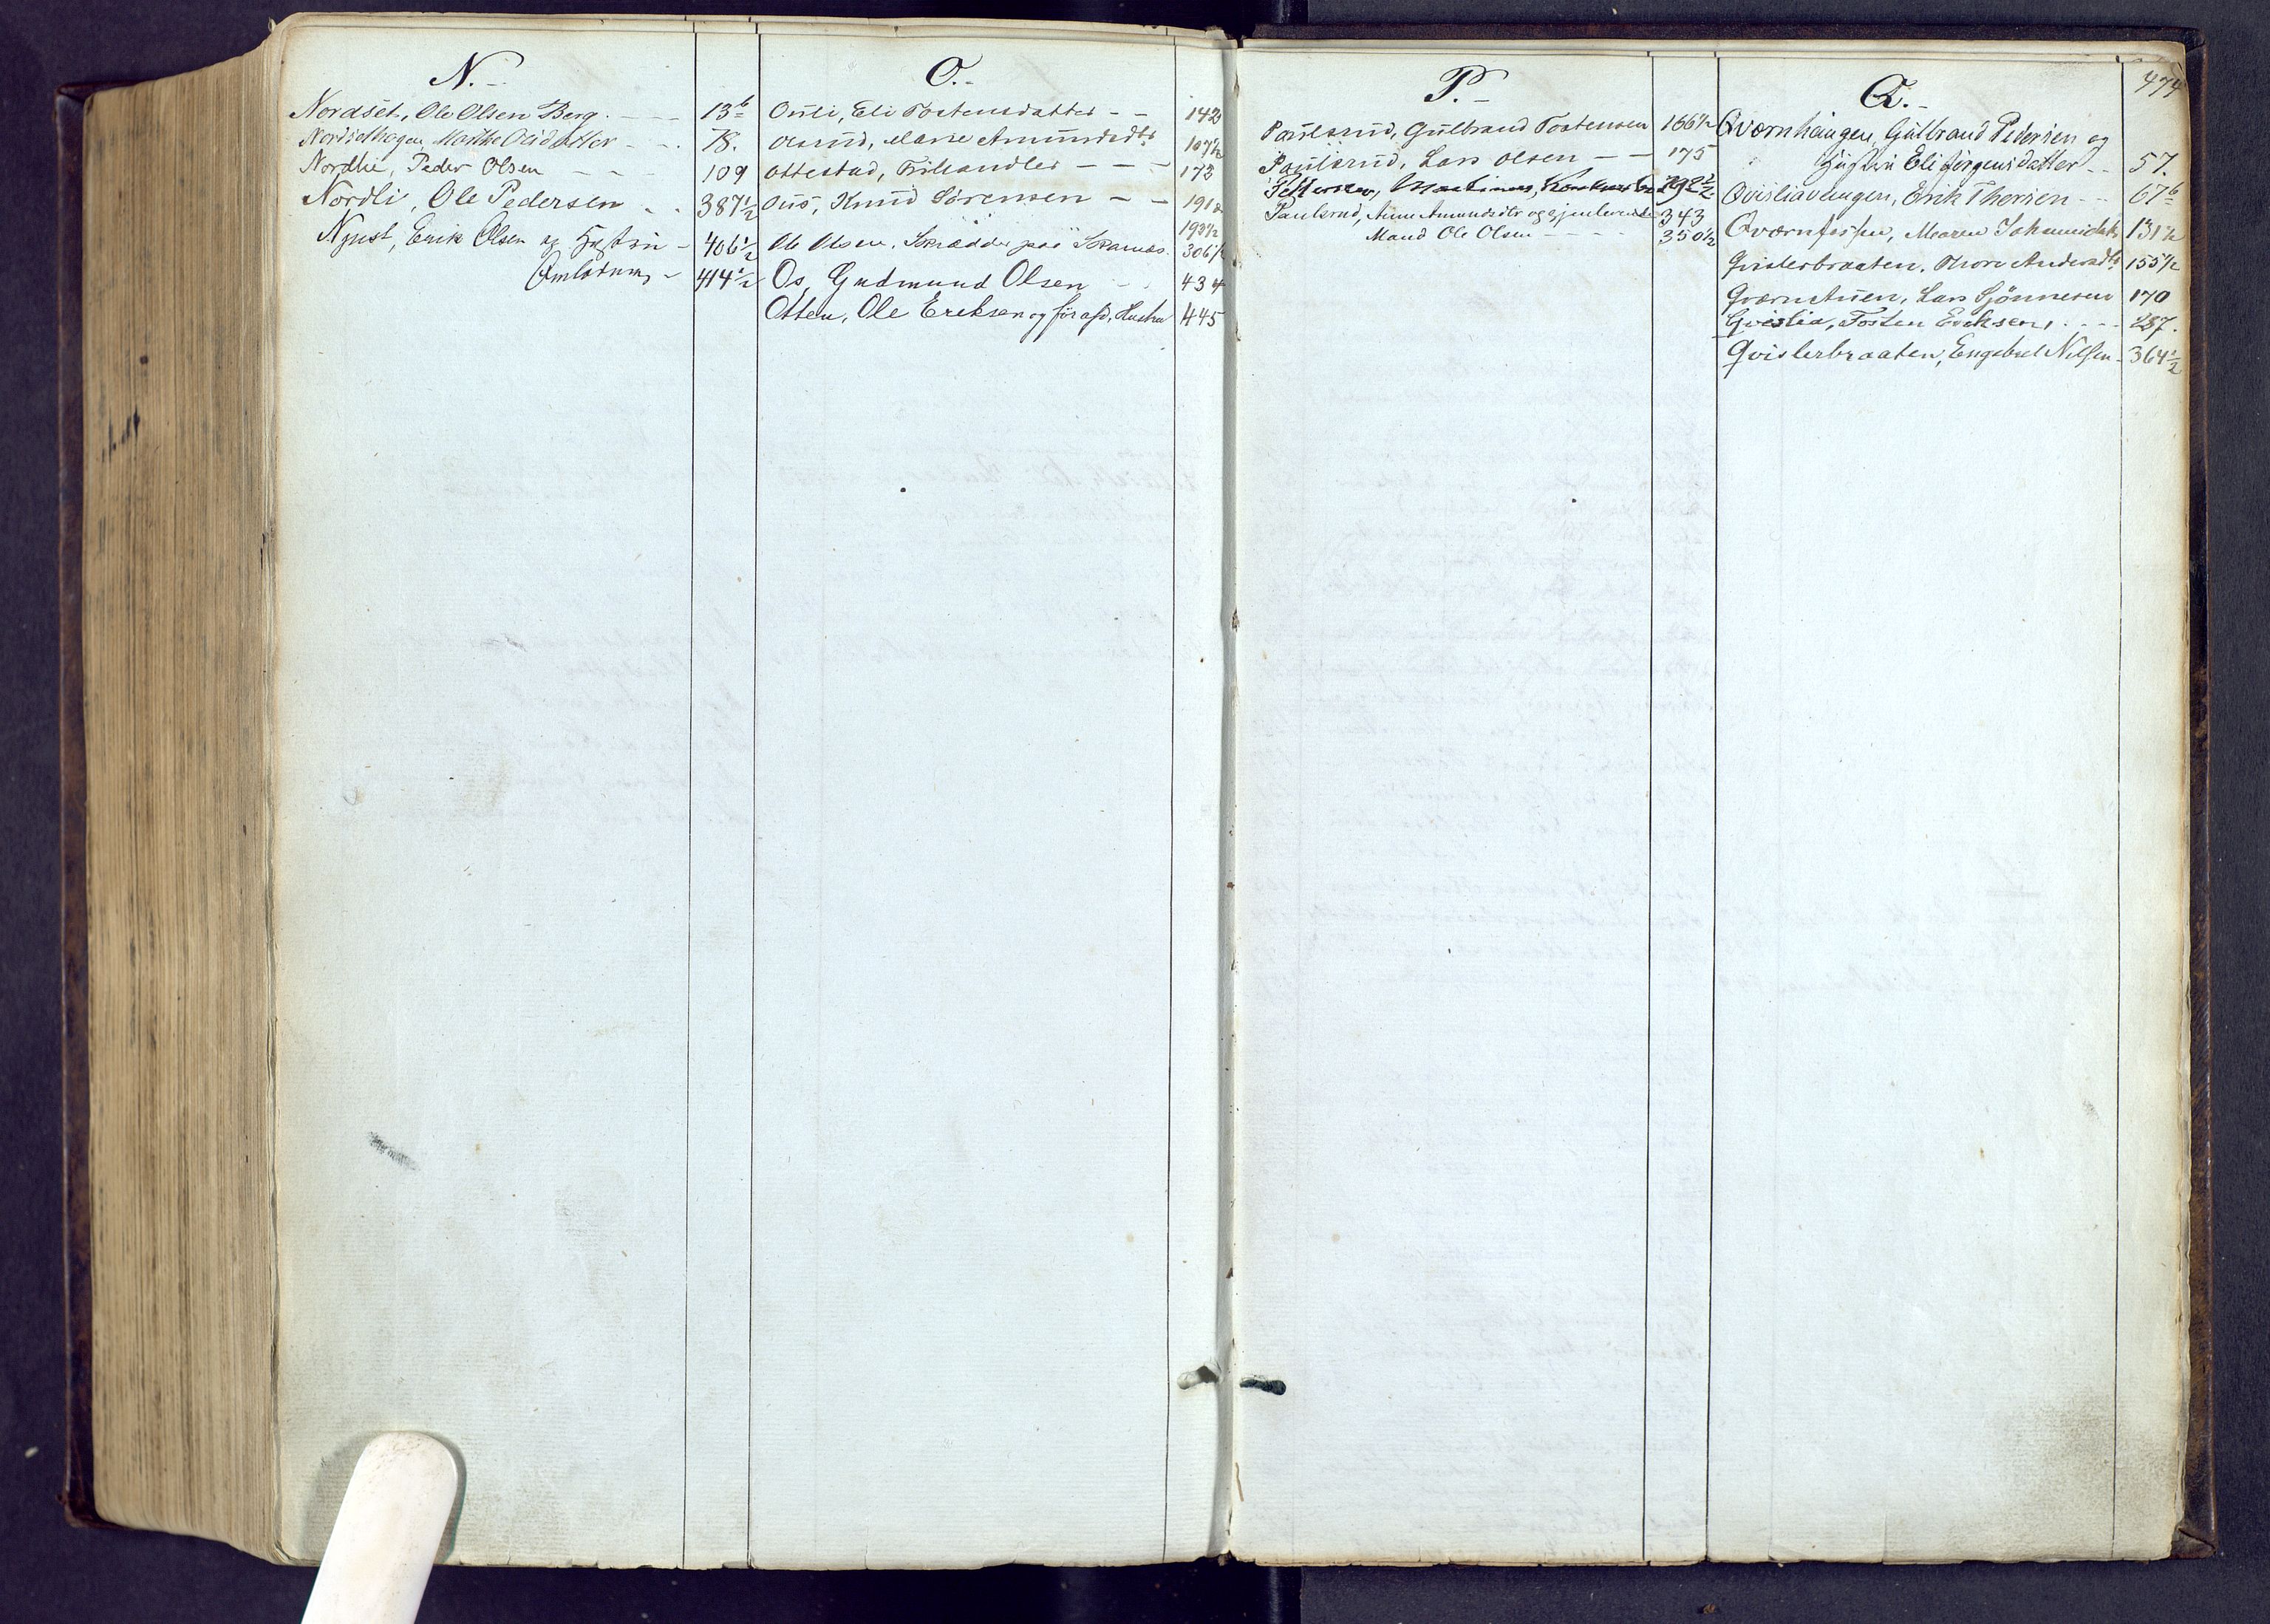 N.
Nordset, Ole Olsen Berg. 13b
Nordsethagen, Marthe Olsdatter 78.
Nordlie, Peder Olsen 109
Nordli, Ole Pedersen 387½
Njust, Erik Olsen og Hustru 406½
414½
O.
Ousli, Eli Tostensdatter 142
Olsrud, Marie Amundsdtr 107½
Ottestad, Frihandler 173
Ous, Knud Sörensen 191
193½
Ole Olsen, Skrædder paa 306½
Os, Gudmund Olsen 434
Otten, Ole Eriksen og för afd. Hustru 445
474
P.
Paulsrud, Gulbrand Tostensen 166½
Paulsrud, Lars Olsen 175
Pettersen, Martinus, 292½
Paulsrud, Anne Amundsdtr og gjenlevende 343
Mand Ole Olsen 350½
Q.
Qværnhaugen, Gulbrand Pedersen og
Hustru Eli Jörgensdatter 57.
Qvisliavangen, Erik Thorsen 67b
Maren Johannesdatr 131½
Qvislerbraaten, Thore Andersdtr 155½
Lars 170
Qvislia, Tosten Eriksen 237.
Qvislerbraaten, Engebret Nilsen 364½